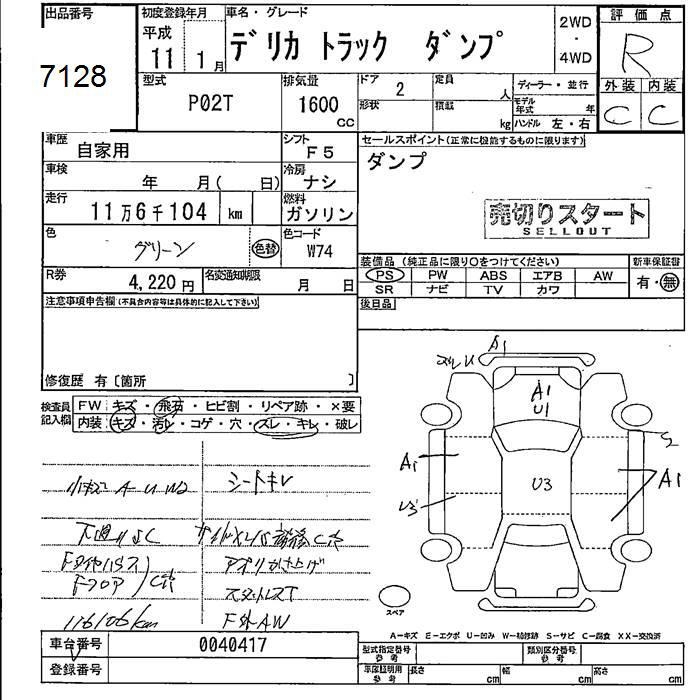 出品番号
7128
初度登録年月
平成
11 1月
車名・グレード
デリカ トラック ダンプ
2WD
・
4WD
評価点
R
外装 内装
C C
型式
P02T
排気量
1600
cc
ドア 2
定員 人
形状
積載 kg
ディーラー・並行
モデル年式 年
ハンドル 左・右
車歴
自家用
シフト
F5
車検
年 月( 日)
冷房
ナシ
走行
11万6千104 km
燃料
ガソリン
色
グリーン
色替
色コード
W74
R券
4,220円
名変通知期限
月 日
セールスポイント(正常に機能するものに限ります)
ダンプ
売切りスタート
SELLOUT
装備品(純正品に限り○をつけてください)
新車保証書
PS PW ABS エアB AW
有・無
SR ナビ TV カワ
後日品
注意事項申告欄(不具合内容等は具体的に記入して下さい)
修復歴 有〔箇所 〕
検査員
記入欄
FW キズ・飛石・ヒビ割・リペア跡・×要
内装 キズ・汚レ・コゲ・穴・スレ・キレ・破レ
小キズ A U W2
シートキレ
下廻りSC
Fフロア
116106km
F外AW
A1
A1
U1
A1
U3
U3
A1
S
スペア
A-キズ E-エクボ U-凹み W-補修跡 S-サビ C-腐食 XX-交換済
車台番号
0040417
登録番号
型式指定番号
参考
類別区分番号
参考
車庫証明用
参考
長さ cm
幅 cm
高さ cm